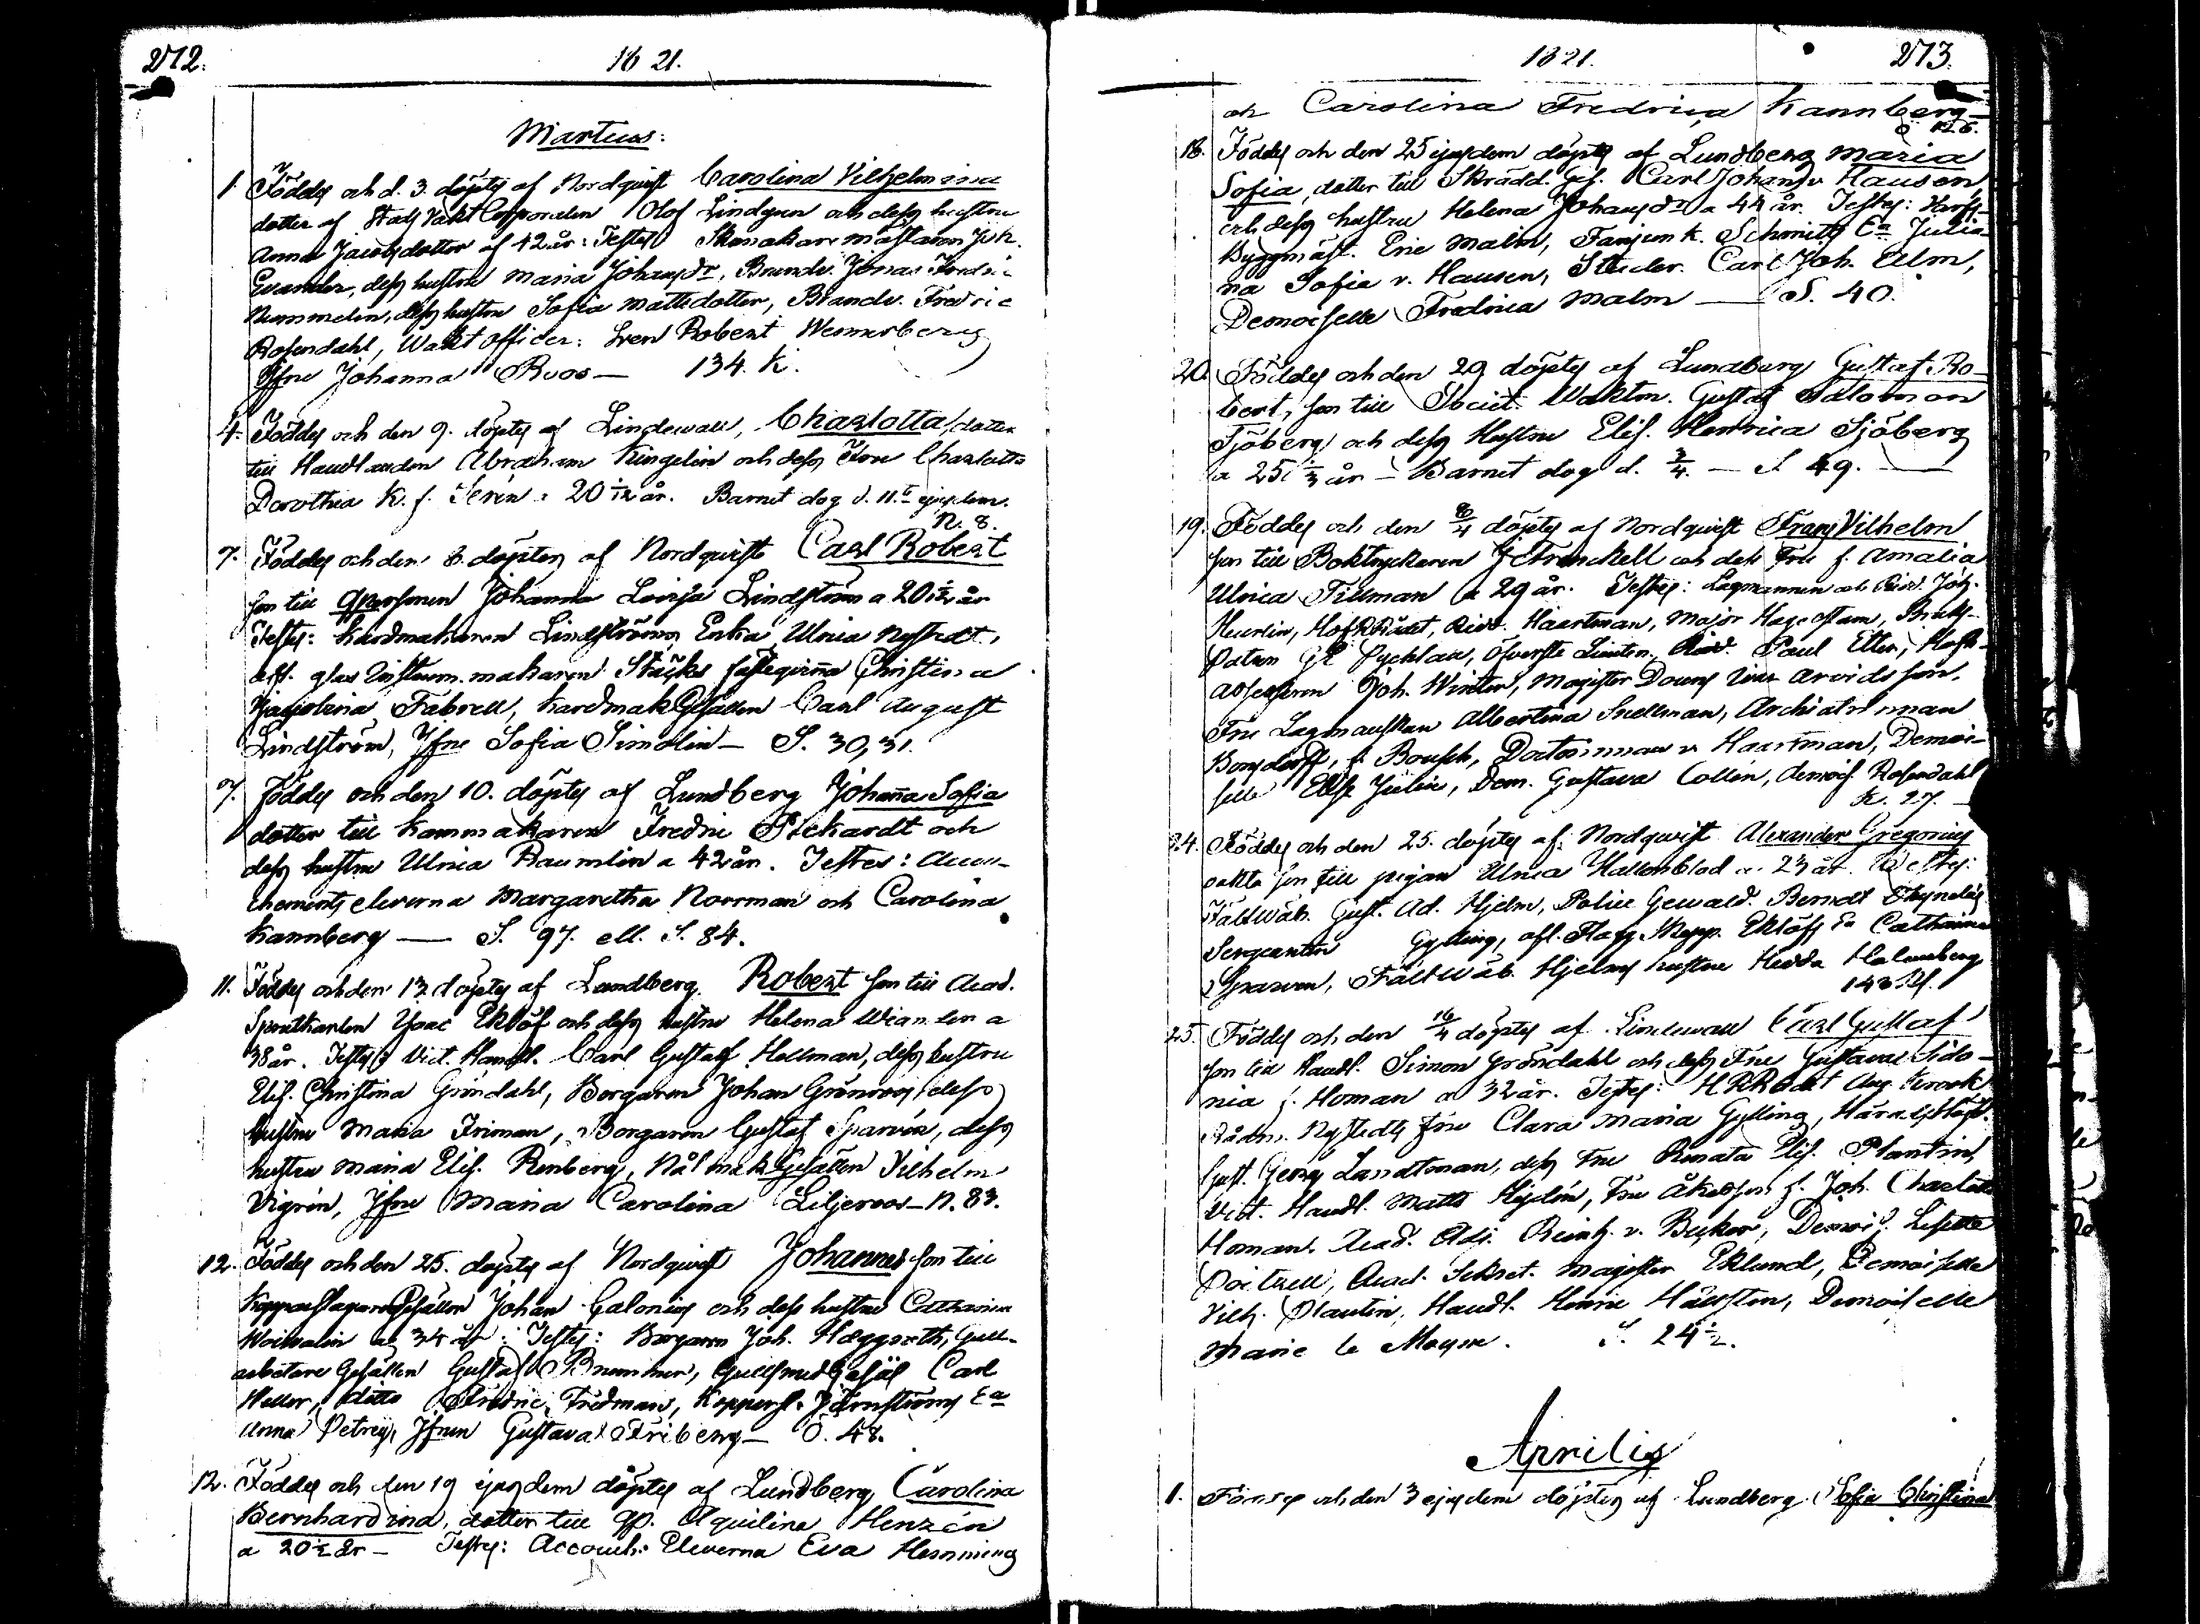 272.
1821.
Martius:
1. Föddes och d. 3. döptes af Nordquist Carolina Vilhelmina
dotter af Stads Vakt Corporalen Olof Lindgren och dess hustru
Anna Jacobsdotter af 42 år: Testes Skomakaremästaren Joh.
Evander, dess hustru Maria Johansdr, Brandv. Jonas Fredric
Nummelin, dess hustru Sofia Mattsdotter, Brandv. Fredric
Rosendahl, Wakt officer: Sven Robert Wennerberg
Jfru Johanna Roos — 134. K.
4. Föddes och den 9. döptes af Lindewall, Charlotta, dotter
till Handlanden Abraham Kingelin och dess Fru Charlotta
Dorothea K. f. Serén a 20 1/12 år. Barnet dog d. 11.te ejusdem.
N. 8.
7. Föddes och den 8. döptes af Nordquist Carl Robert
son till qpersonen Johanna Lovisa Lindström a 20 1/2 år
Testes: Kardmakaren Lindströms Enka Ulrica Nystedt,
afl. glas Instrum. makaren Stücks fästeqvinna Christina
Karolina Fabrell, Kardmak Gesällen Carl August
Lindström, Jfru Sofia Simolin — S. 30, 31.
7. Föddes och den 10. döptes af Lundberg Johanna Sofia
dotter till Kammakaren Fredric Pickardt och
dess hustru Ulrica Raumelin a 42 år. Testes: Accou-
chements eleverna Margaretha Norrman och Carolina
Kannberg — S. 97. ell. S. 84.
11. Föddes och den 13 döptes af Lundberg Robert son till Acad.
Isac Eklöf och dess hustru Helena Wianden a
38 år. Testes: Vict. Handl. Carl Gustaf Hellman, dess hustru
Elis. Christina Gröndahl, Borgaren Johan Grönroos, dess
hustru Maria Friman, Borgaren Gustaf Sparvén, dess
hustru Maria Elis. Renberg, Nålmak Gesällen Vilhelm
Vigrén, Jfru Maria Carolina Liljeroos — N. 83.
12. Föddes och den 25. döptes af Nordquist Johannes son till
Kopparslagare Gesällen Johan Galonius och dess hustru Catharina
a 34 år: Testes: Borgaren Joh. Haggroth, Gull-
arbetare Gesällen Gustaf Brummer, Gullsmed Gesäl Carl
Heller, ditto Fredric Fredman, Koppersl. Jernströms Ea
Anna Petrejs, Jfrun Gustava Friberg — Ö. 48.
12. Föddes och den 19 ejusdem döptes af Lundberg Carolina
Bernhardina, dotter till qp. Aquilina Henzén
a 20 1/2 år — Testes: Accouch. Eleverna Eva Henning
1821.
273.
och Carolina Fredrica Kannberg —
18. Föddes och den 25 ejusdem döptes af Lundberg Maria
Sofia, dotter till Skrädd. Ges. Carl Johan v. Hausen
och dess hustru Helena Johansdr a 44 år. Testes: Varfs-
Byggmäst. Eric Malm, Fanjunk. Schmitts Ea Julia-
na Sofia v. Hausen, Studer. Carl Joh. Elm,
Demoiselle Fredrica Malm — S. 40.
20. Föddes och den 29 döptes af Lundberg Gustaf Ro-
bert, son till Societ. Waktm. Gustaf Salomon
Sjöberg och dess Hustru Elis. Henrica Sjöberg
a 25 1/3 år — Barnet dog d. 2/4. — S. 49. —
19. Föddes och den 8/4 döptes af Nordquist Frans Vilhelm
son till Boktryckaren J. Frenckell och dess Fru f. Amalia
Ulrica Tillman a 29 år. Testes: Lagmannen och Ridd. Joh.
Heurlin, HofRRådet, Ridd. Haartman, Major Hagelstam, Bruks-
Patron Gr. Pychlau, Öfverste Lieuten. Ridd. Paul Etter, Hofr.
assessorn Joh. Winter, Magister Docens Arvidsson,
Fru Lagmanskan Albertina Snellman, Archiatrinnan
Bonsdorff, f. Bousch, Doctorinnan v. Haartman, Demoi-
selle Elise Julin, Dem. Gustava Collin, demois. Rosendahl
K. 27.
24. Föddes och den 25. döptes af Nordquist Alexander Gregorius
oäkta son till pigan Ulrica Hallonblad a 23 år. Testes:
Fältwäb. Gust. Ad. Hjelm, Police Gewald. Berndt
Sergeanten Gylling, afl. Flagg. Skepp. Eklöfs Ea Catharina
Sparvén, Fältwäb. Hjelms hustru Hedda Holmberg
25. Föddes och den 16/4 döptes af Lindewall Carl Gustaf
son till Handl. Simon Gröndahl och dess Fru Gustava Sido-
nia f. Homan a 32 år. Testes: HRRådet Aug. Krook
Rådm. Nystedts Fru Clara Maria Gylling, Häradshöfd.
Gust. Georg Landtman, dess Fru Renata Elis. Plantin,
Vict. Handl. Matts Hjelm, Fru Åkesson f. Joh. Charlotta
Homan. Acad. Adj. Reinh. v. Becker, Demois. Lisette
Acad. Sekret. Magister Eklund, Demoiselle
Vilh. Plantin, Handl. Henric Hällsten, Demoiselle
Marie le Moyne. S. 24 1/2.
Aprilis
1. Föddes och den 3 ejusdem döptes af Lundberg Sofia Christina